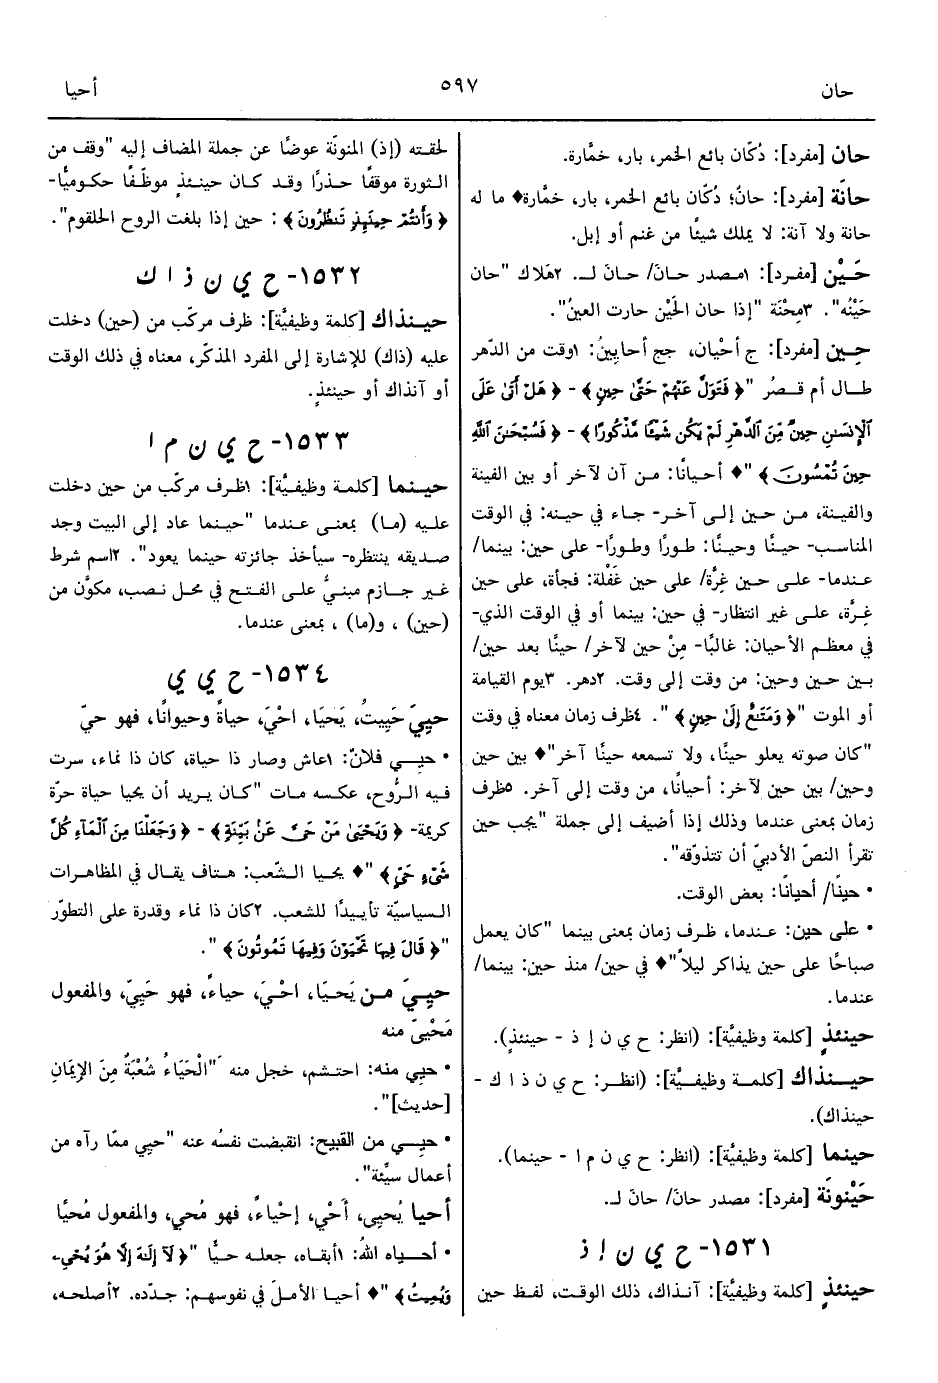 حان
٥٩٧
أحيا
حان [مفرد]: دُكّان بائع الخمر، بار، خمّارة.
حانَة [مفرد]: حانٌ؛ دُكّان بائع الخمر، بار، خمّارة♦ ما له
حانة ولا آنة: لا يملك شيئًا من غنم أو إبل.
حَيْن [مفرد]: ١مصدر حانَ/ حانَ لـ. ٢هَلاك "حان
حَيْنُه". ٣مِحْنَة "إذا حان الحَيْن حارت العينُ".
حِين [مفرد]: ج أحْيان، جج أحايينُ: ١وقت من الدّهر
طال أم قصُر "﴿ فَتَوَلَّ عَنْهُمْ حَتَّىٰ حِينٍ ﴾ - ﴿ هَلْ أَتَىٰ عَلَى
الْإِنسَٰنِ حِينٌ مِّنَ الدَّهْرِ لَمْ يَكُن شَيْئًا مَّذْكُورًا ﴾ - ﴿ فَسُبْحَٰنَ اللَّهِ
حِينَ تُمْسُونَ ﴾ "♦ أحيانًا: من آن لآخر أو بين الفينة
والفينة، من حين إلى آخر- جاء في حينه: في الوقت
المناسب- حينًا وحينًا: طورًا وطورًا- على حين: بينما/
عندما- على حين غِرَّة/ على حين غَفْلة: فجأة، على حين
غِرَّة، على غير انتظار- في حين: بينما أو في الوقت الذي-
في معظم الأحيان: غالبًا- مِنْ حين لآخر/ حينًا بعد حين/
بين حين وحين: من وقت إلى وقت. ٢دهر. ٣يوم القيامة
أو الموت "﴿ وَمَتَٰعٌ إِلَىٰ حِينٍ ﴾ ". ٤ظرف زمان معناه في وقت
"كان صوته يعلو حينًا، ولا تسمعه حينًا آخر"♦ بين حين
وحين/ بين حين لآخر: أحيانًا، من وقت إلى آخر. ٥ظرف
زمان بمعنى عندما وذلك إذا أضيف إلى جملة "يجب حين
تقرأ النصّ الأدبيّ أن تتذوّقه".
• حينًا/ أحيانًا: بعض الوقت.
• على حين: عندما، ظرف زمان بمعنى بينما "كان يعمل
صباحًا على حين يذاكر ليلاً"♦ في حين/ منذ حين: بينما/
عندما.
حينئذٍ [كلمة وظيفيَّة]: (انظر: ح ي ن إ ذ - حينئذٍ).
حينذاك [كلمة وظيفيَّة]: (انظر: ح ي ن ذ ا ك -
حينذاك).
حينما [كلمة وظيفيَّة]: (انظر: ح ي ن م ا - حينما).
حَيْنونَة [مفرد]: مصدر حانَ/ حانَ لـ.
١٥٣١- ح ي ن إ ذ
حينئذٍ [كلمة وظيفيَّة]: آنذاك، ذلك الوقت، لفظ حين
لحقته (إذ) المنونّة عوضًا عن جملة المضاف إليه "وقف من
الثورة موقفًا حذرًا وقد كان حينئذٍ موظّفًا حكوميًّا-
﴿ وَأَنتُمْ حِينَئِذٍ تَنظُرُونَ ﴾ : حين إذا بلغت الروح الحلقوم".
١٥٣٢- ح ي ن ذ ا ك
حينذاك [كلمة وظيفيَّة]: ظرف مركّب من (حين) دخلت
عليه (ذاك) للإشارة إلى المفرد المذكّر، معناه في ذلك الوقت
أو آنذاك أو حينئذٍ.
١٥٣٣- ح ي ن م ا
حينما [كلمة وظيفيَّة]: ١ظرف مركّب من حين دخلت
عليه (ما) بمعنى عندما "حينما عاد إلى البيت وجد
صديقه ينتظره- سيأخذ جائزته حينما يعود". ٢اسم شرط
غير جازم مبنيٌّ على الفتح في محل نصب، مكوَّن من
(حين) ، و(ما) ، بمعنى عندما.
١٥٣٤- ح ي ي
حيِيَ حَيِيتُ، يَحيَا، احْيَ، حياةً وحيوانًا، فهو حيّ
• حيِي فلانٌ: ١عاش وصار ذا حياة، كان ذا نماء، سرت
فيه الرُّوح، عكسه مات "كان يريد أن يحيا حياة حرّة
كريمة- ﴿ وَيَحْيَىٰ مَنْ حَيَّ عَنْ بَيِّنَةٍ ﴾ - ﴿ وَجَعَلْنَا مِنَ الْمَاءِ كُلَّ
شَيْءٍ حَيٍّ ﴾ "♦ يحيا الشّعب: هتاف يقال في المظاهرات
السياسيّة تأييدًا للشعب. ٢كان ذا نماء وقدرة على التطوّر
"﴿ قَالَ فِيهَا تَحْيَوْنَ وَفِيهَا تَمُوتُونَ ﴾ ".
حيِيَ من يَحيَا، احْيَ، حياءً، فهو حَيِيّ، والمفعول
مَحْييّ منه
• حيِي منه: احتشم، خجل منه "الْحَيَاءُ شُعْبَةٌ مِنَ الإِيمَانِ
[حديث]".
• حيِي من القبيح: انقبضت نفسُه عنه "حيِي ممّا رآه من
أعمال سيِّئة".
أحيا يُحيِي، أَحْيِ، إحْياءً، فهو مُحيٍ، والمفعول مُحيًّا
• أحياه اللهُ: ١أبقاه، جعله حيًّا "﴿ لَا إِلَٰهَ إِلَّا هُوَ يُحْيِي
وَيُمِيتُ ﴾ "♦ أحيا الأملَ في نفوسهم: جدّده. ٢أصلحه،